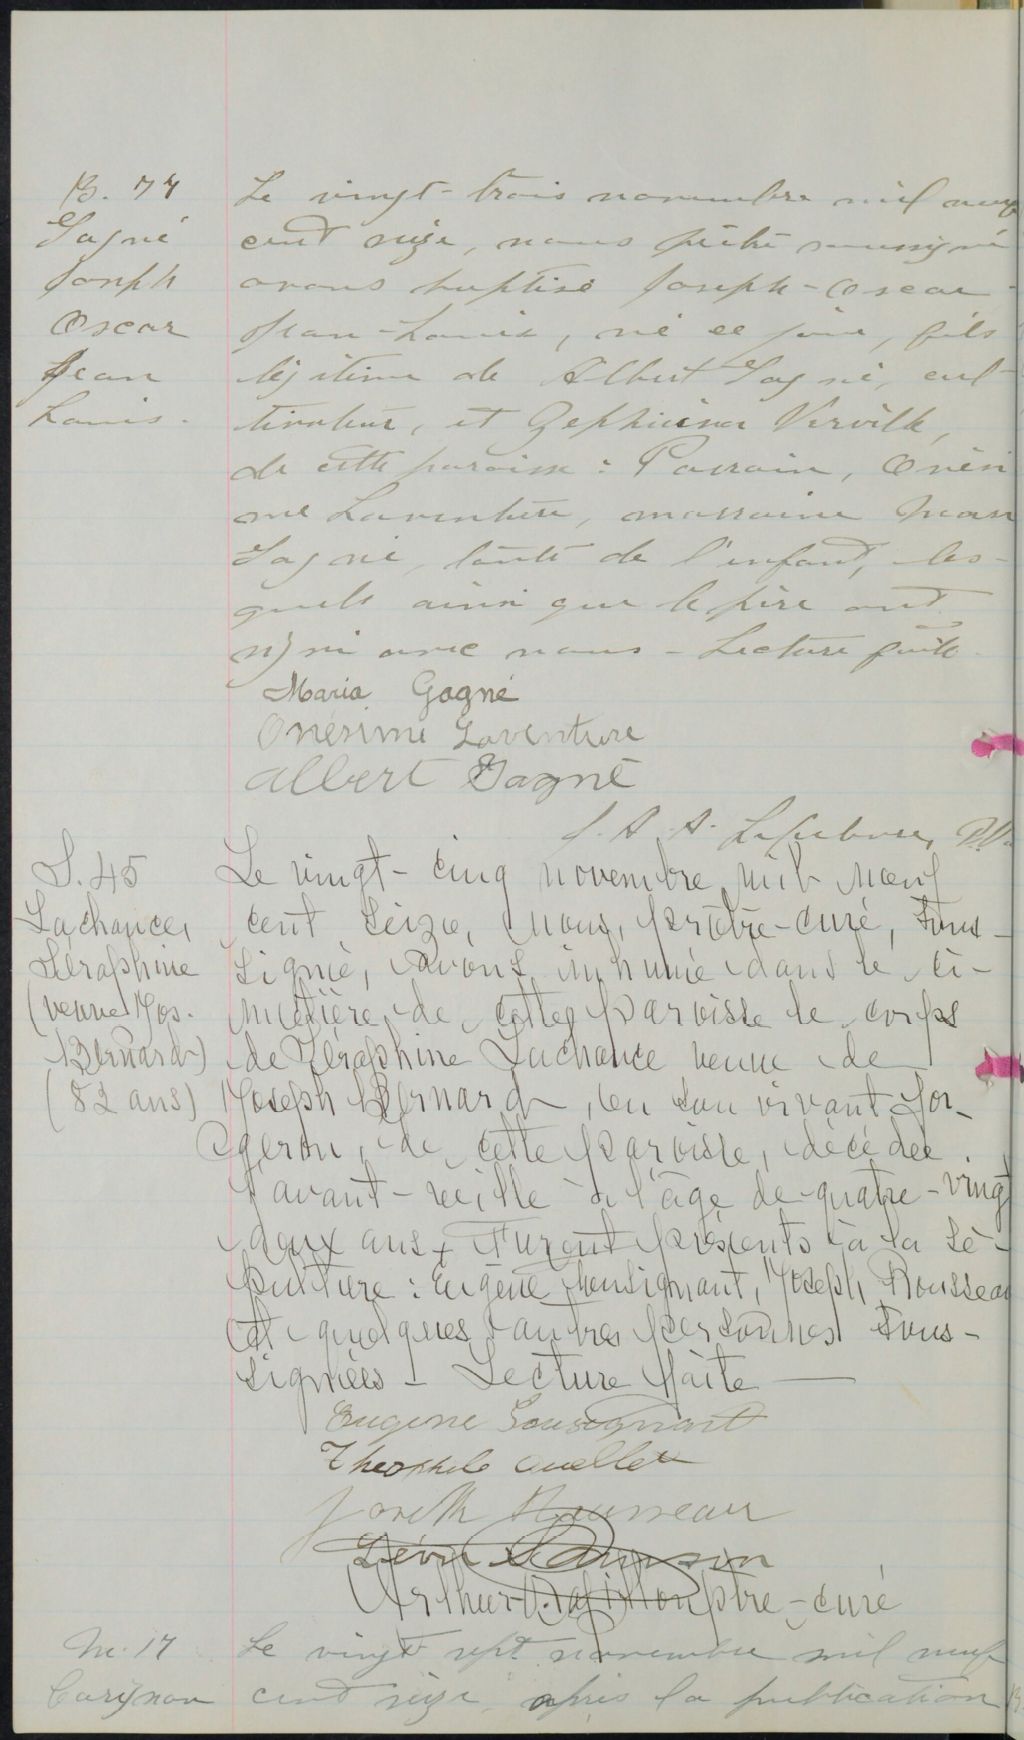 B. 77
Gagné
Joseph
Oscar
Jean
Louis.
Le vingt-trois novembre mil neuf
cent seize, nous prêtre soussigné
avons baptisé Joseph-Oscar-
Jean-Louis, né ce jour, fils
légitime de Albert Gagné, cul-
tivateur, et Zephirina Verville,
de cette paroisse : Parrain, Onési
me Laventure, marraine Maria
Gagné, tante de l'enfant, les-
quels ainsi que le père ont
signé avec nous - Lecture faite.
Maria Gagné
Onésime Laventure
Albert Gagné
J. A. A. Lefebvre, Ptre
S. 45
Lachance,
Séraphine
(veuve Jos.
Bernard)
(82 ans)
Le vingt-cinq novembre, mil neuf
cent seize, nous, prêtre-curé, sous-
signé, avons inhumé dans le ci-
metière de cette paroisse le corps
de Séraphine Lachance veuve de
Joseph Bernard, en son vivant for-
geron, de cette paroisse, décédée
l'avant-veille à l'âge de quatre-vingt
deux ans. Furent présents à la sé-
pulture : Eugène Sensignant, Joseph Rousseau
et quelques autres personnes sous-
signées - Lecture faite —
Eugene
Theophile Ouellet
Joseph Rousseau
Arthur ptre-curé
M. 17
Carignan
Le vingt sept novembre mil neuf
cent seize, après la publication